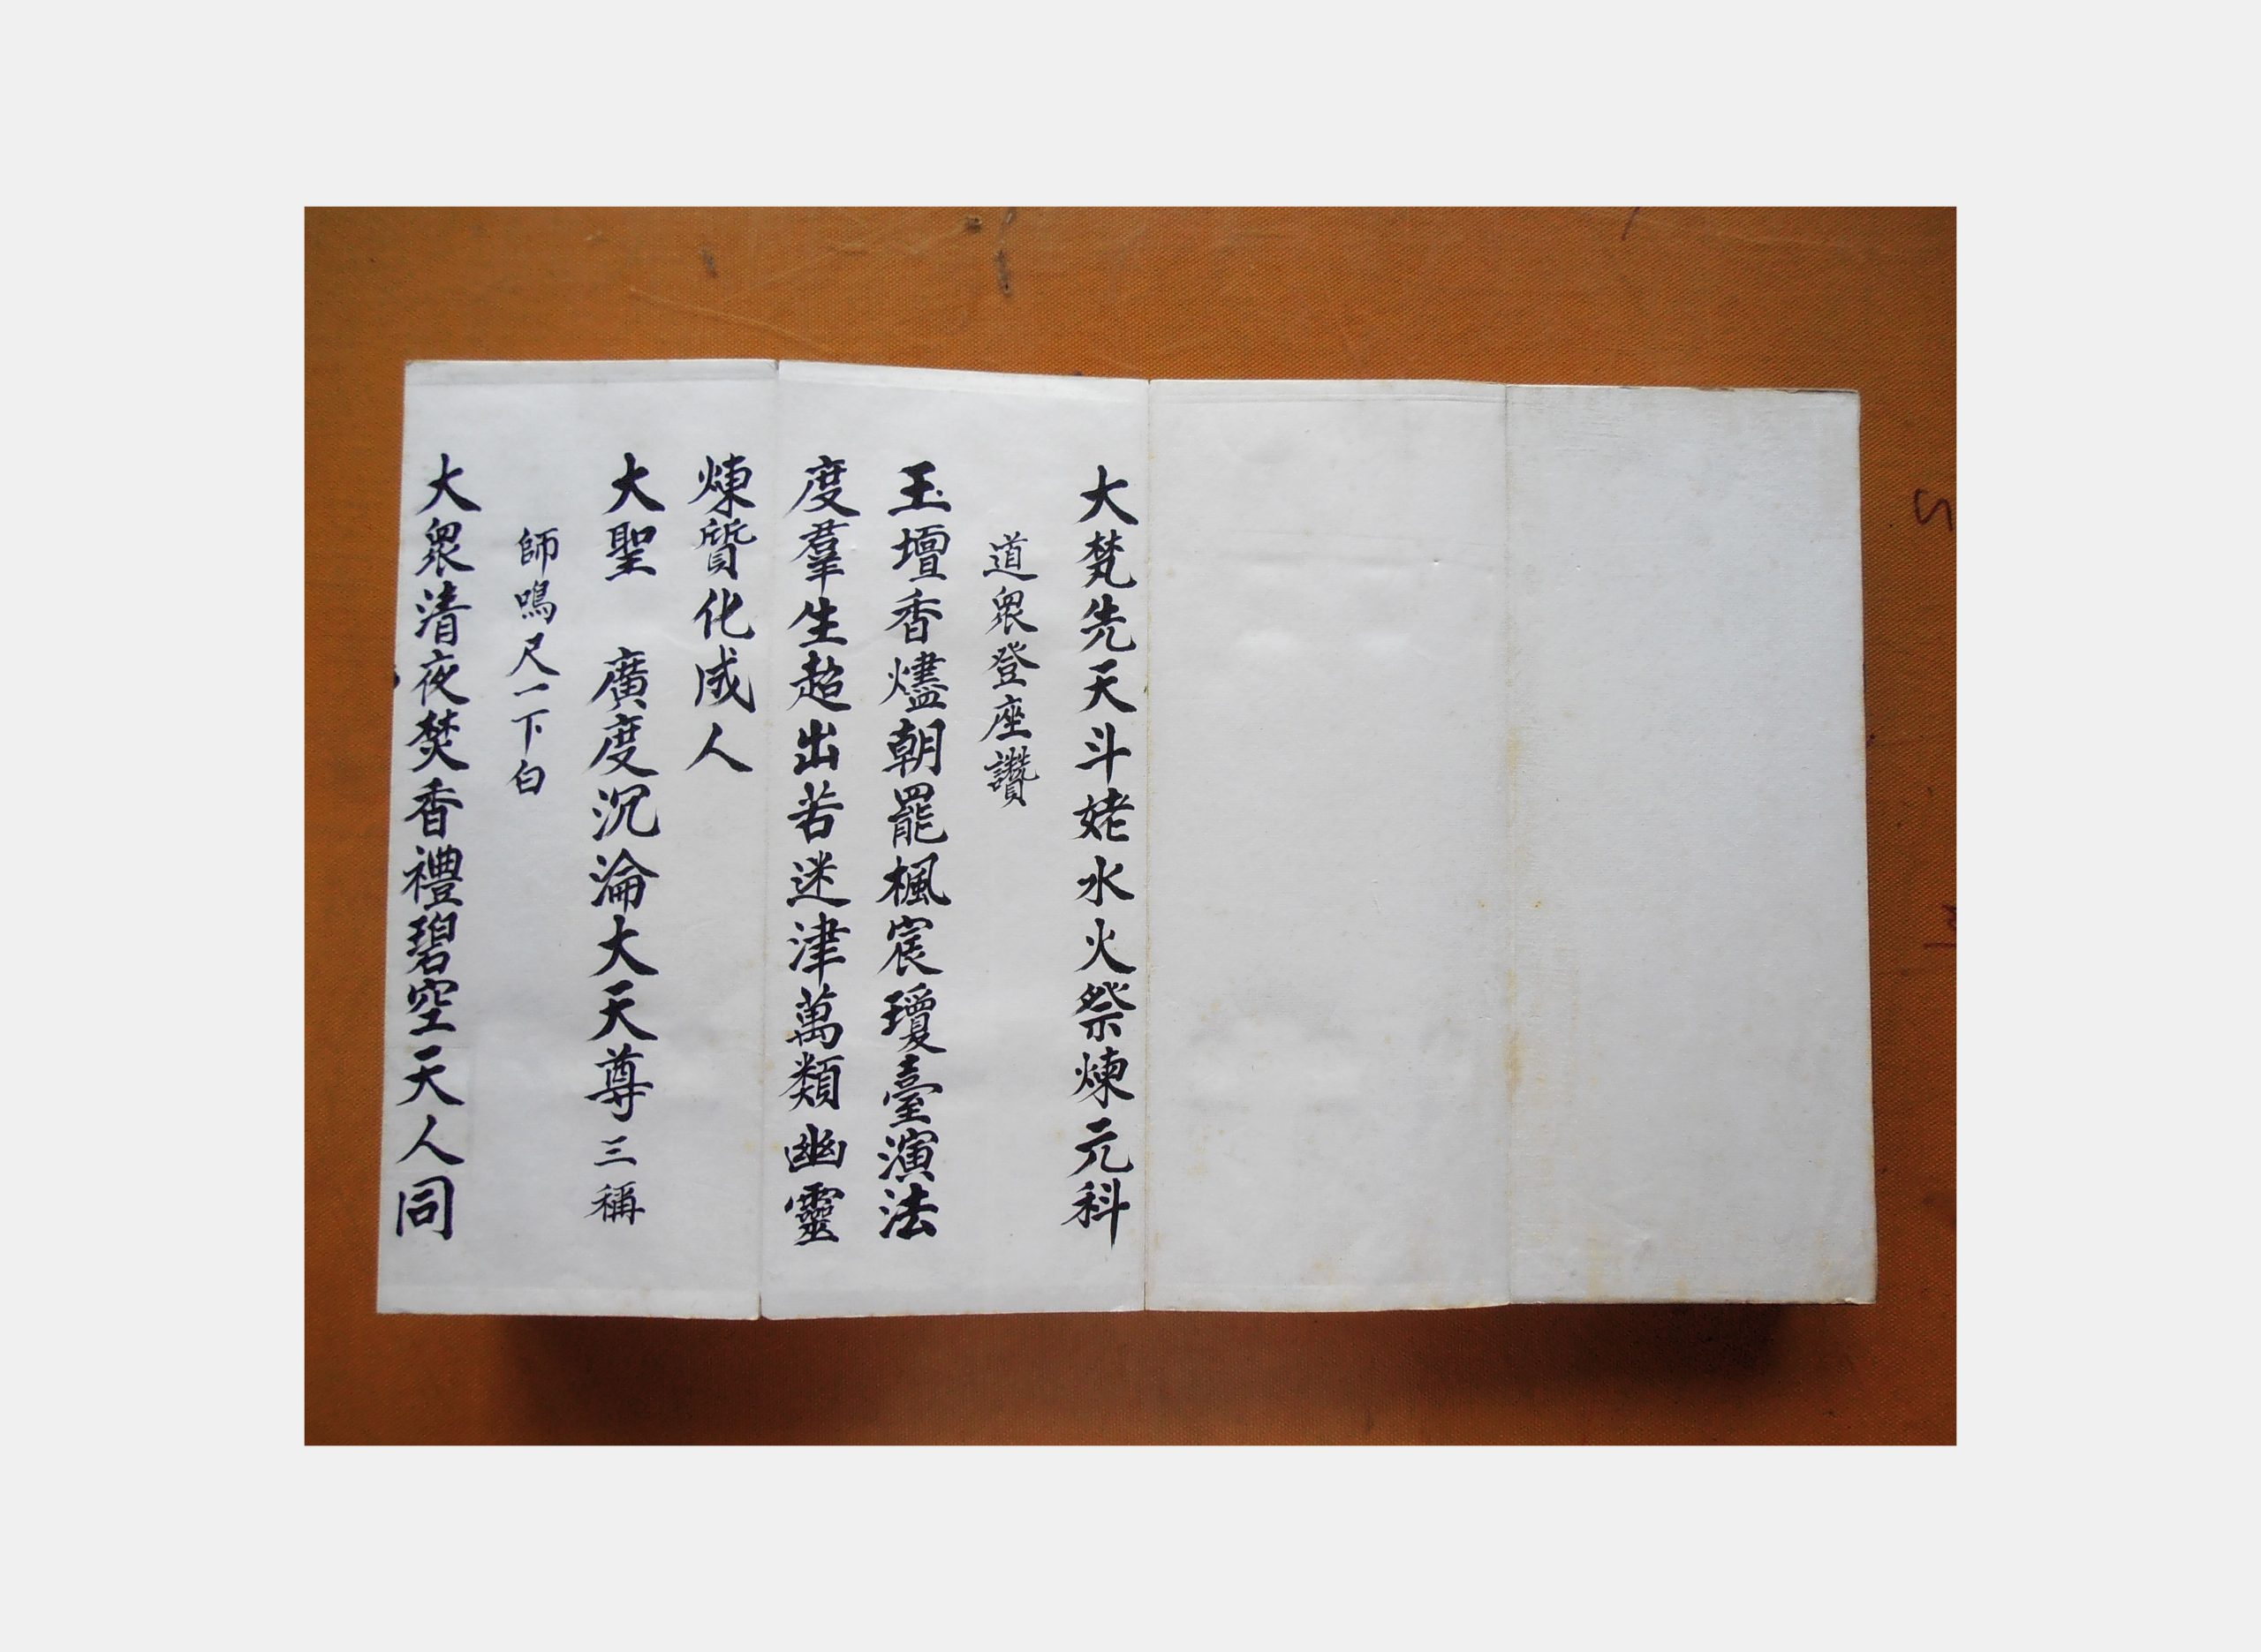 大梵先天斗姥水火祭煉元科
道眾登座讚
玉壇香燼朝罷楓宸瓊臺演法
度羣生超出若迷津萬類幽靈
煉質化成人
大聖　廣度沉淪大天尊三稱
師鳴尺一下白
大眾清夜焚香禮碧空天人同